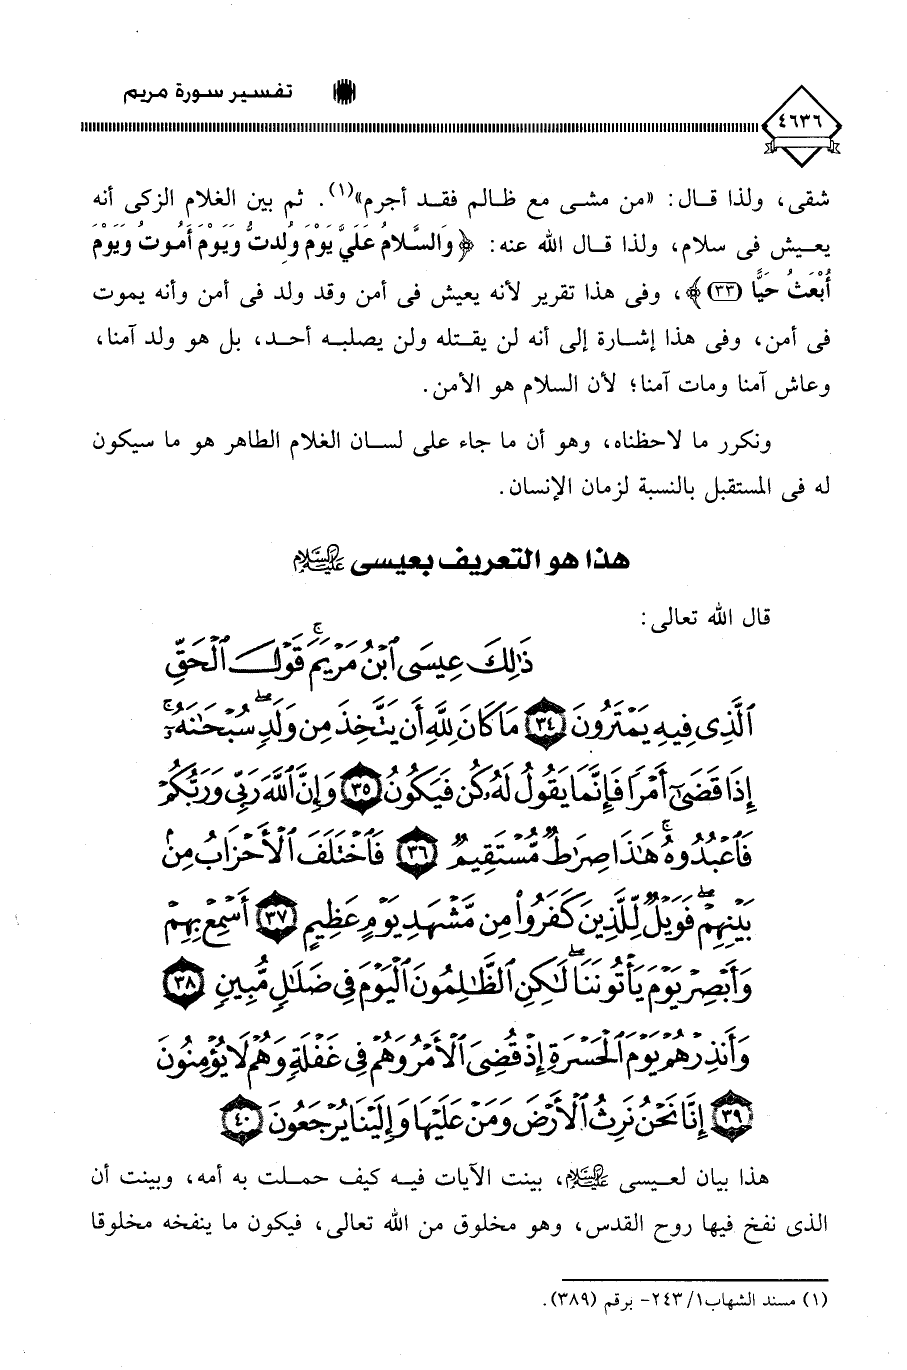 ٤٦٣٦
تفسير سورة مريم
شقى، ولذا قال: «من مشى مع ظالم فقد أجرم»(١). ثم بين الغلام الزكى أنه
يعيش فى سلام، ولذا قال الله عنه: ﴿وَالسَّلامُ عَلَيَّ يَوْمَ وُلِدتُّ وَيَوْمَ أَمُوتُ وَيَوْمَ
أُبْعَثُ حَيًّا (٣٣)﴾، وفى هذا تقرير لأنه يعيش فى أمن وقد ولد فى أمن وأنه يموت
فى أمن، وفى هذا إشارة إلى أنه لن يقتله ولن يصلبه أحد، بل هو ولد آمنا،
وعاش آمنا ومات آمنا؛ لأن السلام هو الأمن.
ونكرر ما لاحظناه، وهو أن ما جاء على لسان الغلام الطاهر هو ما سيكون
له فى المستقبل بالنسبة لزمان الإنسان.
هذا هو التعريف بعيسى عليه السلام
قال الله تعالى:
ذَٰلِكَ عِيسَى ٱبْنُ مَرْيَمَ ۚ قَوْلَ ٱلْحَقِّ
ٱلَّذِى فِيهِ يَمْتَرُونَ ٣٤ مَا كَانَ لِلَّهِ أَن يَتَّخِذَ مِن وَلَدٍ ۖ سُبْحَٰنَهُۥٓ ۚ
إِذَا قَضَىٰٓ أَمْرًا فَإِنَّمَا يَقُولُ لَهُۥ كُن فَيَكُونُ ٣٥ وَإِنَّ ٱللَّهَ رَبِّى وَرَبُّكُمْ
فَٱعْبُدُوهُ ۚ هَٰذَا صِرَٰطٌ مُّسْتَقِيمٌ ٣٦ فَٱخْتَلَفَ ٱلْأَحْزَابُ مِنۢ
بَيْنِهِمْ ۖ فَوَيْلٌ لِّلَّذِينَ كَفَرُوا۟ مِن مَّشْهَدِ يَوْمٍ عَظِيمٍ ٣٧ أَسْمِعْ بِهِمْ
وَأَبْصِرْ يَوْمَ يَأْتُونَنَا ۖ لَٰكِنِ ٱلظَّٰلِمُونَ ٱلْيَوْمَ فِى ضَلَٰلٍ مُّبِينٍ ٣٨
وَأَنذِرْهُمْ يَوْمَ ٱلْحَسْرَةِ إِذْ قُضِىَ ٱلْأَمْرُ وَهُمْ فِى غَفْلَةٍ وَهُمْ لَا يُؤْمِنُونَ
٣٩ إِنَّا نَحْنُ نَرِثُ ٱلْأَرْضَ وَمَنْ عَلَيْهَا وَإِلَيْنَا يُرْجَعُونَ ٤٠
هذا بيان لعيسى عليه السلام، بينت الآيات فيه كيف حملت به أمه، وبينت أن
الذى نفخ فيها روح القدس، وهو مخلوق من الله تعالى، فيكون ما ينفخه مخلوقا
(١) مسند الشهاب١/ ٢٤٣- برقم (٣٨٩).